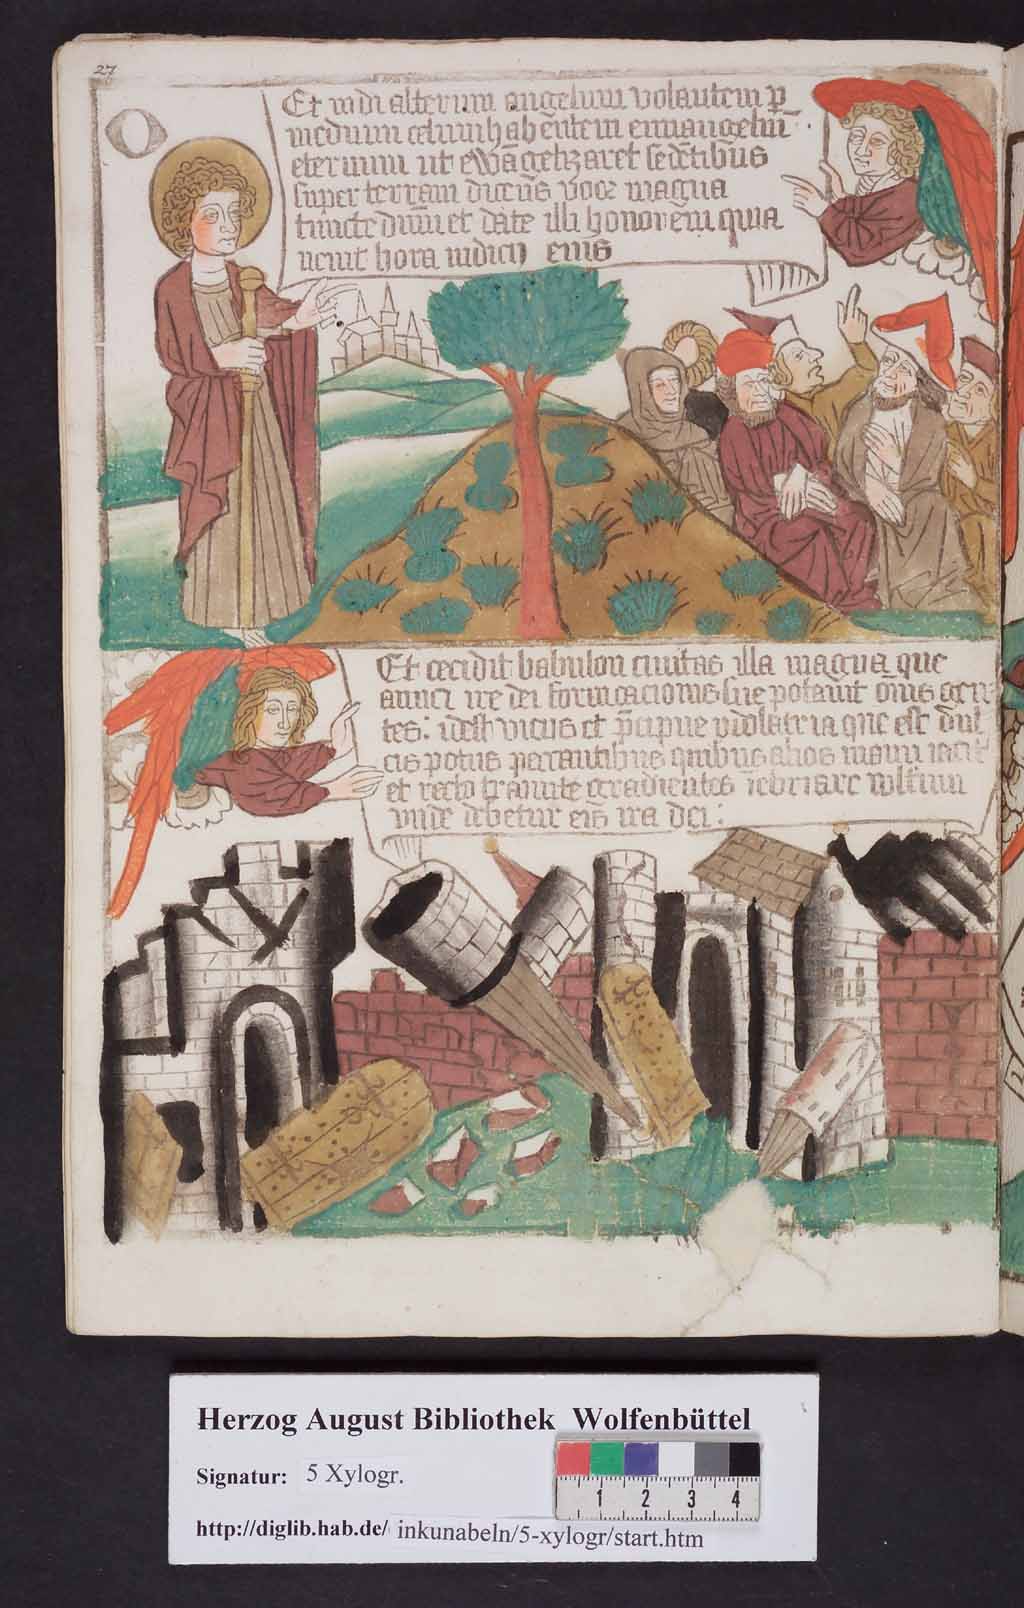 27
O
Et vidi alterum angelum volantem p
medium celum habentem ewangeliu
eternum ut ewagelizaret sedetibus
super terram dicens voce magna
timete dnm et date illi honorem quia
venit hora iudicij eius
Et cecidit babilon civitas illa magna que
a vino ire dei fornicacionis sue potavit omis gen
tes : idest vicius et pcipue ydolatria que est dul
cis potus peccantibus quibus alios
et recto tramite gradientes iebriare
unde debetur eis ira dei :
Herzog August Bibliothek Wolfenbüttel
Signatur: 5 Xylogr.
1 2 3 4
cm
http://diglib.hab.de/ inkunabeln/5-xylogr/start.htm